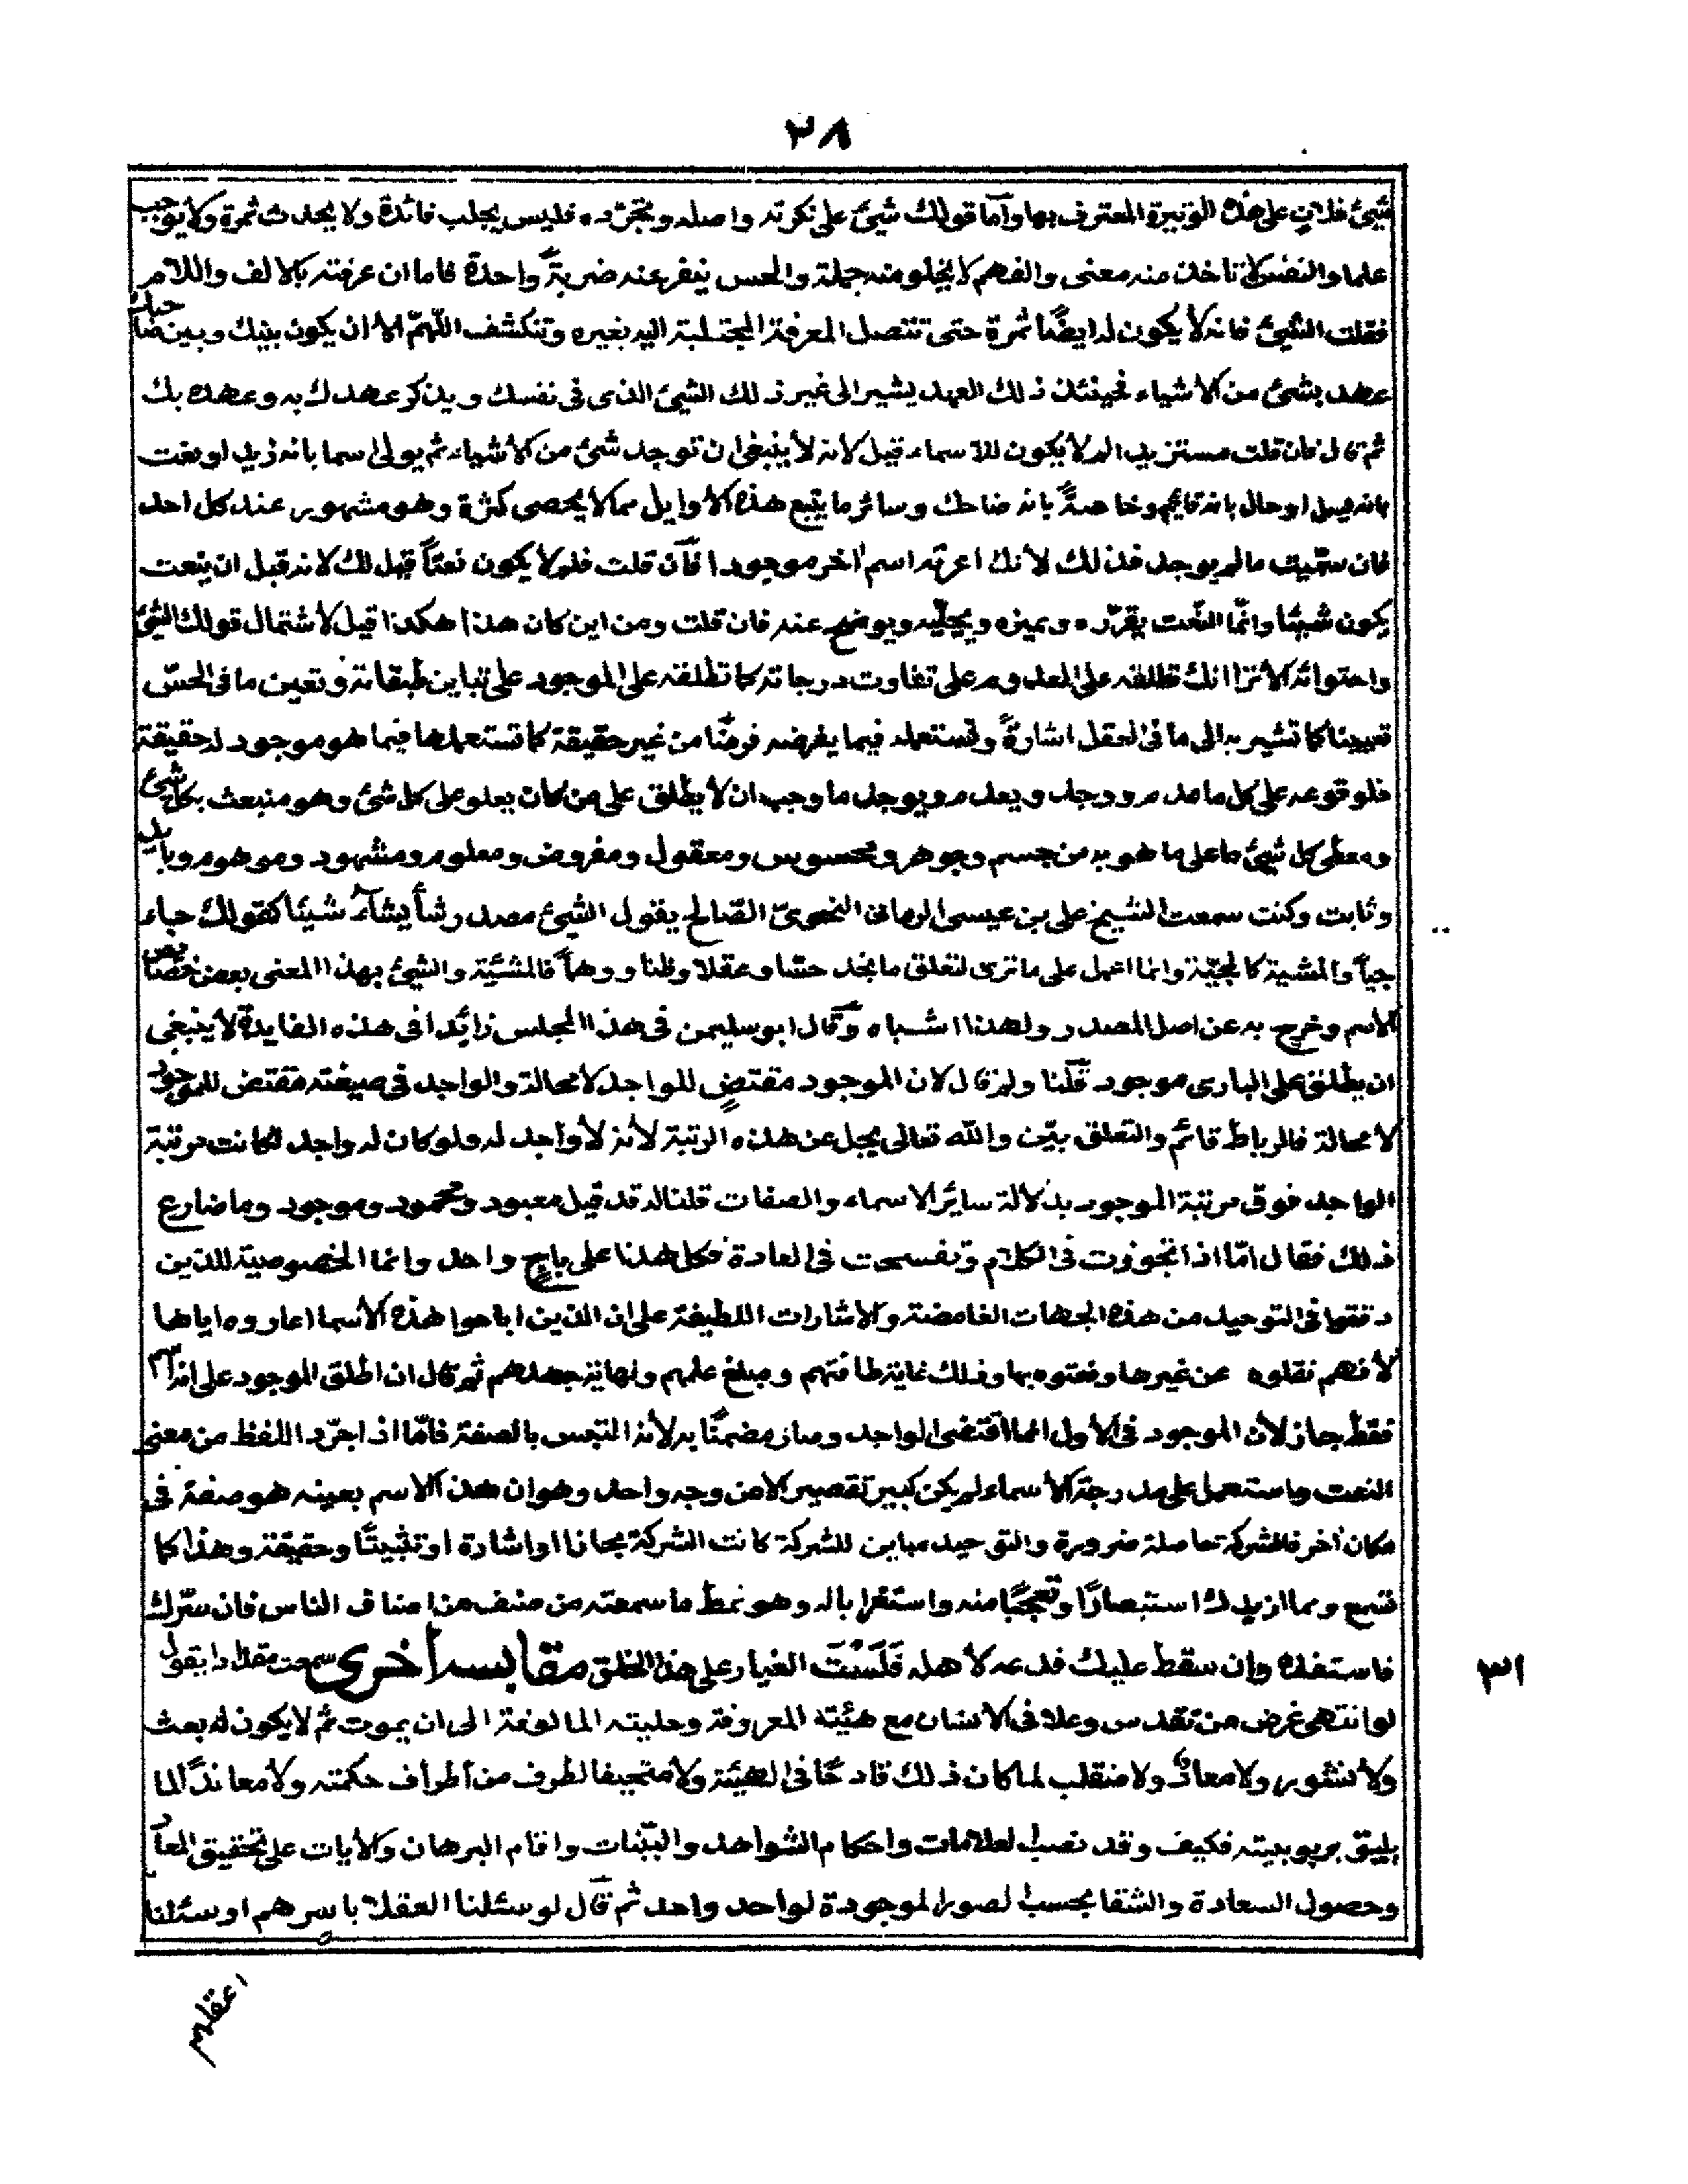 ٢٨
شيئ فلان على هذه الوتيرة المعترف بها وأما قولك شيئ على نكرته واصله وتجرّده فليس يجلب فائدة ولا يحدث ثمرة ولا يوجب
علما والنفس لا تاخذ منه معنى والفهم لا يخلو منه جملة والحس ينفر عنه ضربة واحدة فاما ان عرفته بالالف واللام
فقلت الشيئ فانه لا يكون له ايضًا ثمرة حتى تتصل المعرفة المجتلبة اليه بغيره وتنكشف اللّهمّ الا ان يكون بينك وبين صاحبك
عهد بشئ من الاشياء فحينئذ ذلك العهد يشير الى غير ذلك الشيئ الذى فى نفسك ويذكر عهدك به وعهده بك
ثم قال فان قلت مستزيدا لم لا يكون للاسماء قيل لانه لا ينبغى ان توجد شئ من الاشياء ثم يولى اسما بانه زيد او نعت
بانه او حال بانه قايم وخاصة بانه ضاحك وسائر ما يتبع هذه الاوايل مما لا يحصى كثرة وهو مشهور عند كل احد
فان سمّيت ما لم يوجد فذلك لأنك اعرته اسم اخر موجود فان قلت فلم لا يكون نعتاً قيل لك لانه قبل ان ينعت
يكون شيئا وانّما النعت يقرّره ويميزه ويجلّيه ويوضح عنه فان قلت ومن اين كان هذا هكذا قيل لاشتمال قولك الشيئ
واحتوائه الا ترا انك تطلقه على المعدوم على تفاوت درجاته كما تطلقه على الموجود على تباين طبقاته وتعين ما فى الحسّ
تعيينا كما تشير به الى ما فى العقل اشارةً وتستعمله فيما يفرضه فرضًا من غير حقيقة كما تستعملها فيما هو موجود له حقيقة
فلوقوعه على كل ما عدم ووجد ويعدم ويوجد ما وجب ان لا يطلق على من كان يعلو على كل شئ وهو منبعث بكل شيئ
ومعطى كل شيئ ما على ما هو به من جسم وجوهر ومحسوس ومعقول ومفروض ومعلوم ومشهود وموهوم وبايد
وثابت وكنت سمعت الشيخ على بن عيسى الرمانى النحوىّ الصّالح يقول الشيئ مصدر شأ يشاء شيئا كقولك جاء
جيأ والمشية كالمجيّة وانما اعمل على ما ترى لتعلق ما بخد حسّا وعقلا وظنا ووهمًا فالمشيّة والشيئ بهذا المعنى بعض خصايص
الاسم وخرج به عن اصل المصدر ولهذا اشباه وقال ابو سليمن فى هذا المجلس زائدا فى هذه الفايدة لا ينبغى
ان يطلق على البارى موجود قلنا ولم قال لان الموجود مقتضٍ للواجد لا محالة والواجد فى صيغته مقتض للموجود
لا محالة فالرباط قائم والتعلق بيّن والله تعالى يجل عن هذه الرتبة لأنه لا واجد له ولو كان له واجد لكانت مرتبة
الواجد فوق مرتبة الموجود بدلالة سائر الاسماء والصفات قلنا له قد قيل معبود ومحمود وموجود وما ضارع
ذلك فقال امّا اذا تجوزت فى الكلام وتفسحت فى العادة فكل هذا على باج واحد وانما الخصوصية للذين
دققوا فى التوحيد من هذه الجهات الغامضة والاشارات اللطيفة على ان الذين اباحوا هذه الأسما اعاروه اياها
لانهم نقلوه عن غيرها ونعتوه بها وذلك غاية طاقتهم ومبلغ علمهم ونهاية جهدهم ثم قال ان اطلق الموجود على انه اسم
فقط جاز لأن الموجود فى الأول انما اقتضى الواجد وصار مضمنًا به لأنه التبس بالصفة فامّا اذا جرّد اللفظ من معنى
النعت واستعمل على مدرجة الاسماء لم يكن كبير تقصير الا من وجه واحد وهو ان هذا الاسم بعينه هو صفة فى
مكان اخر فالشركة حاصلة ضرورة والتوحيد مباين للشركة كانت الشركة مجازا او اشارة او تثبيتًا وحقيقة وهذا كما
تسمع ومما ازيدك استبصارًا وتعجبًا منه واستغرابا له وهو نمط ما سمعته من صنف من اصناف الناس فان سرّك
فاستفده وان سقط عليك فدعه لأهله فَلَسْتَ الغيار على هذا الخلق مقابسه أخرى سمعت مقدادا يقول
٣١
لو انتهى غرض من تقدس وعلا فى الانسان مع هيئته المعروفة وحليته المالوفة الى ان يموت ثم لا يكون له بعث
ولا نشور ولا معاد ولا منقلب لما كان ذلك قادحًا فى الهيئة ولا متحيفا لطرف من أطراف حكمته ولا معاندًا لما
يليق بربوبيته فكيف وقد نصب العلامات واحكام الشواهد والبيّنات واقام البرهان والأيات على تحقيق المعاد
وحصول السعادة والشقا بحسب الصور الموجودة لواحد واحد ثم قال لو سئلنا العقلا باسرهم او سئلنا
اعقلهم